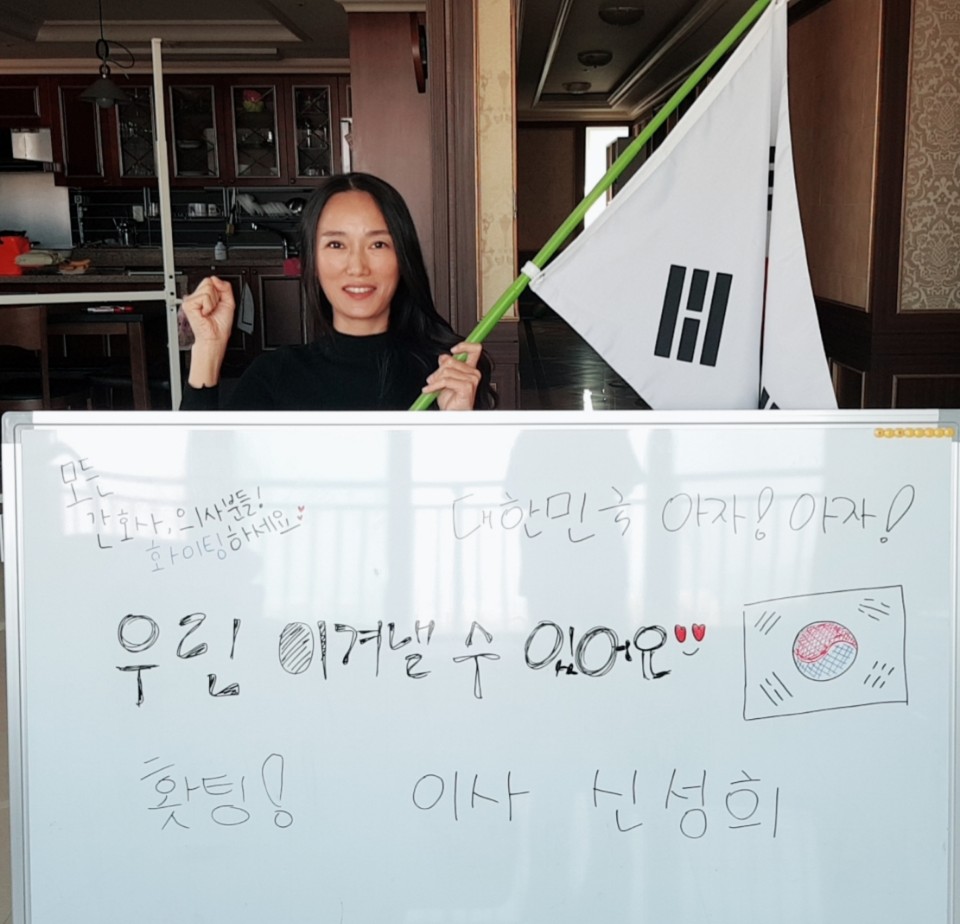 모든
간호사, 의사분들!
화이팅하세요
대한민국 아자! 아자!
우린 이겨낼 수 있어요
홧팅!
이사 신성희